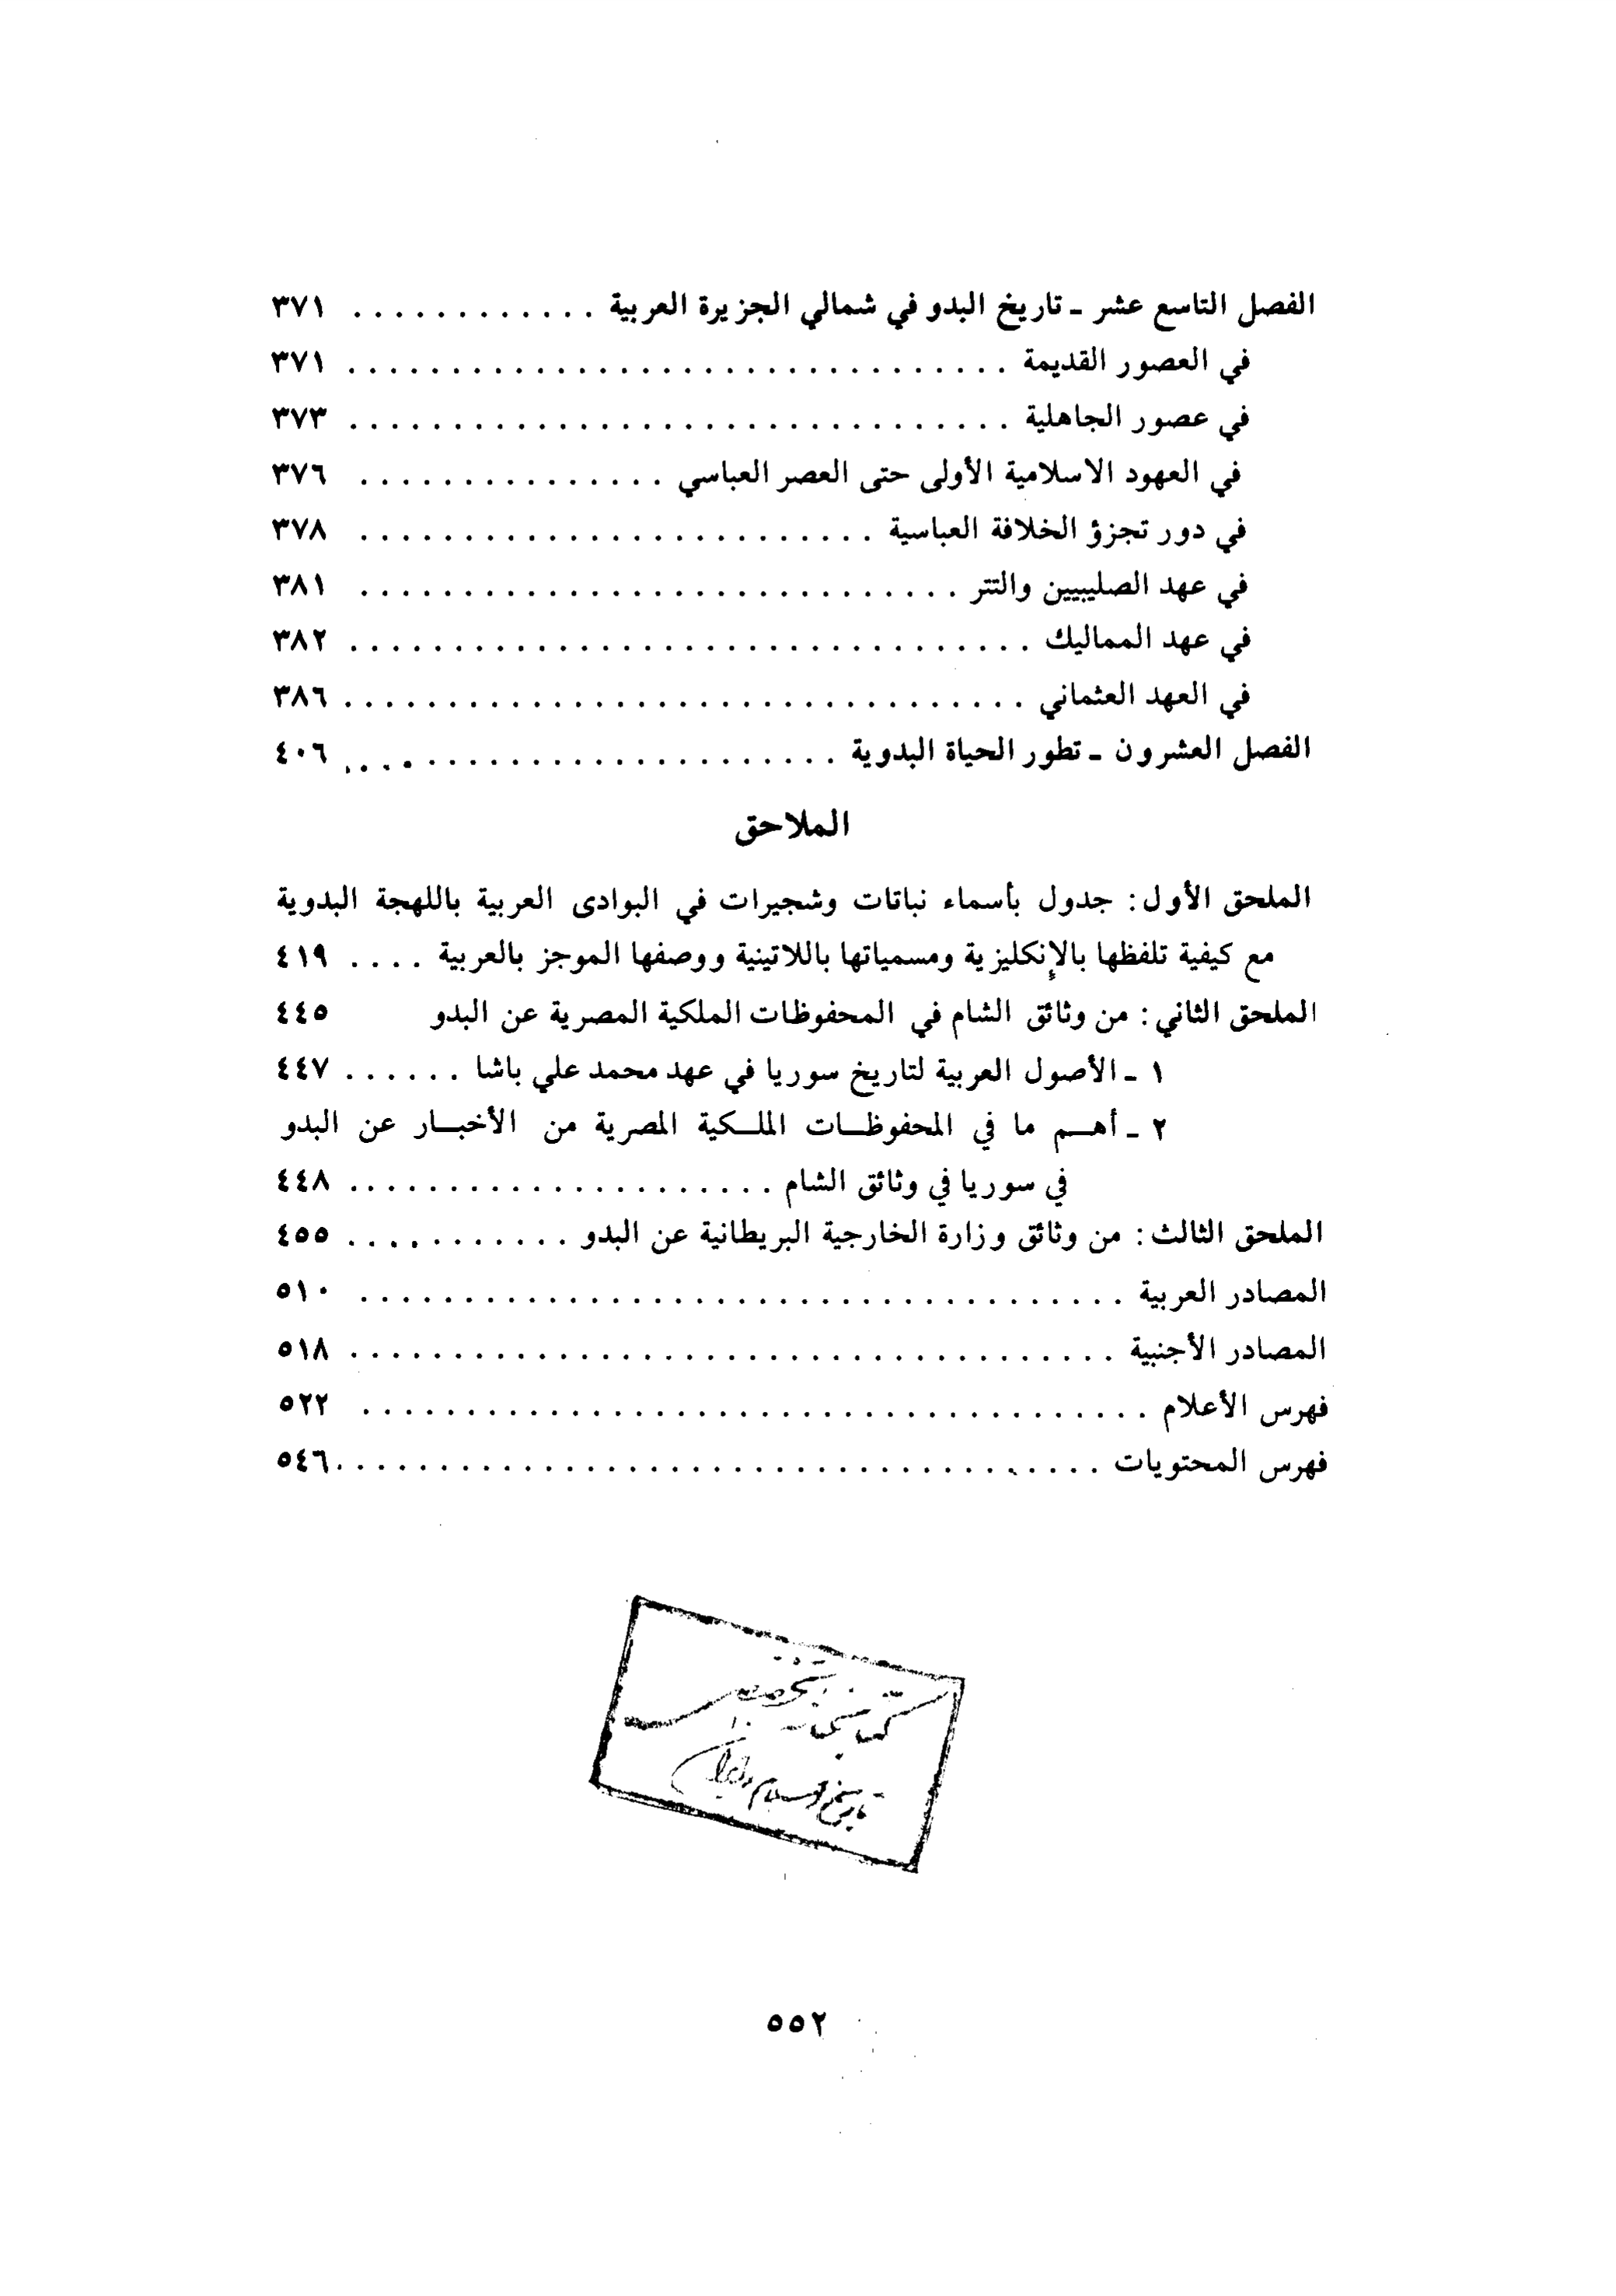 الفصل التاسع عشر ـ تاريخ البدو في شمالي الجزيرة العربية . . . . . . . . . . . . ٣٧١
في العصور القديمة . . . . . . . . . . . . . . . . . . . . . . . . . . . . . . . . ٣٧١
في عصور الجاهلية . . . . . . . . . . . . . . . . . . . . . . . . . . . . . . . . ٣٧٣
في العهود الاسلامية الأولى حتى العصر العباسي . . . . . . . . . . . . . . . ٣٧٦
في دور تجزؤ الخلافة العباسية . . . . . . . . . . . . . . . . . . . . . . . . . ٣٧٨
في عهد الصليبيين والتتر . . . . . . . . . . . . . . . . . . . . . . . . . . . . . ٣٨١
في عهد المماليك . . . . . . . . . . . . . . . . . . . . . . . . . . . . . . . . . ٣٨٢
في العهد العثماني . . . . . . . . . . . . . . . . . . . . . . . . . . . . . . . . . ٣٨٦
الفصل العشرون ـ تطور الحياة البدوية . . . . . . . . . . . . . . . . . . . . . . . . ٤٠٦
الملاحق
الملحق الأول: جدول بأسماء نباتات وشجيرات في البوادى العربية باللهجة البدوية
مع كيفية تلفظها بالإنكليزية ومسمياتها باللاتينية ووصفها الموجز بالعربية . . . . ٤١٩
الملحق الثاني: من وثائق الشام في المحفوظات الملكية المصرية عن البدو ٤٤٥
١ ـ الأصول العربية لتاريخ سوريا في عهد محمد علي باشا . . . . . . ٤٤٧
٢ ـ أهـم ما في المحفوظـات الملـكية المصرية من الأخبـار عن البدو
في سوريا في وثائق الشام . . . . . . . . . . . . . . . . . . . . . ٤٤٨
الملحق الثالث: من وثائق وزارة الخارجية البريطانية عن البدو . . . . . . . . . . . ٤٥٥
المصادر العربية . . . . . . . . . . . . . . . . . . . . . . . . . . . . . . . . . . . . . ٥١٠
المصادر الأجنبية . . . . . . . . . . . . . . . . . . . . . . . . . . . . . . . . . . . . . ٥١٨
فهرس الأعلام . . . . . . . . . . . . . . . . . . . . . . . . . . . . . . . . . . . . . . ٥٢٢
فهرس المحتويات . . . . . . . . . . . . . . . . . . . . . . . . . . . . . . . . . . . . . ٥٤٦
٥٥٢